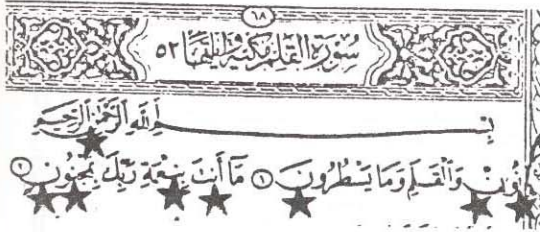 ٦٨
سُورَةُ الْقَلَمِ مَكِّيَّةٌ وَآيَاتُهَا ٥٢
بِسْمِ اللَّهِ الرَّحْمَٰنِ الرَّحِيمِ
نٓ وَالْقَلَمِ وَمَا يَسْطُرُونَ ١ مَا أَنتَ بِنِعْمَةِ رَبِّكَ بِمَجْنُونٍ ٢